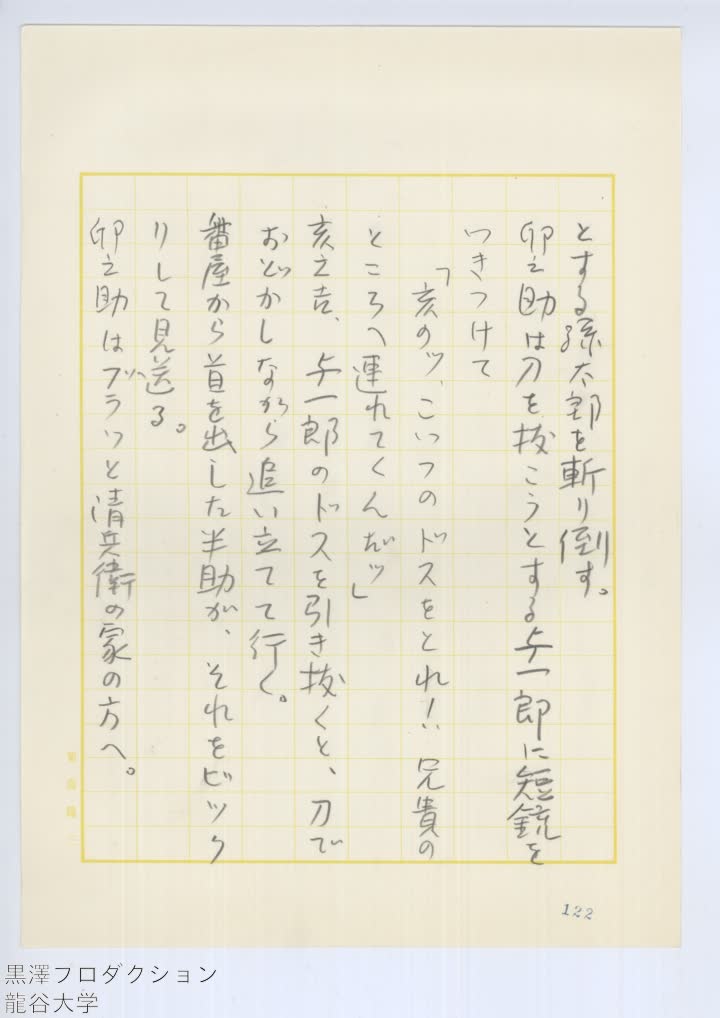 とする孫太郎を斬り倒す。
卯之助は刀を抜こうとする与一郎に短銃を
つきつけて
「亥のッ、こいつのドスをとれ！、兄貴の
ところへ連れてくんだッ」
亥之吉、与一郎のドスを引き抜くと、刀で
おどかしながら追い立てて行く。
番屋から首を出した半助が、それをビック
リして見送る。
卯之助はブラッと清兵衛の家の方へ。
122
黒澤プロダクション
龍谷大学